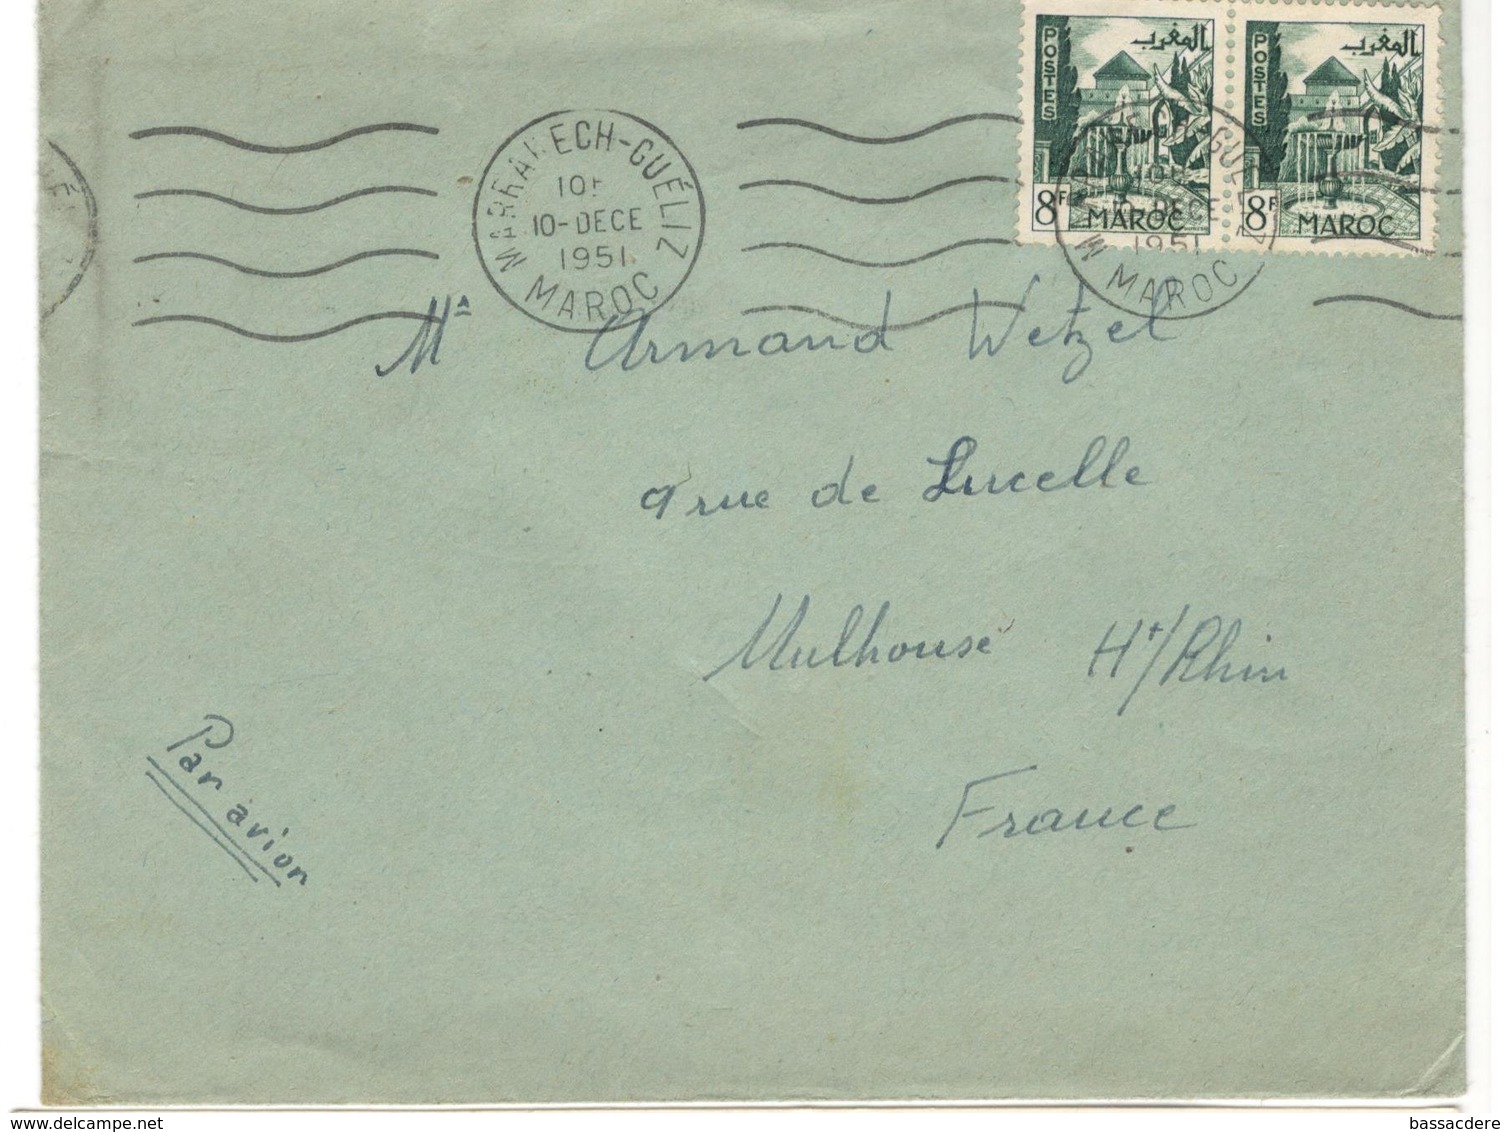 POSTES المغرب
8F MAROC
POSTES المغرب
8F MAROC
MARRAKECH-GUÉLIZ
10-DECE
1951
MAROC
10-DECE
1951
MAROC
Mr Armand Wetzel
9 rue de Lucelle
Mulhouse Ht/Rhin
France
Par avion
bassacdere